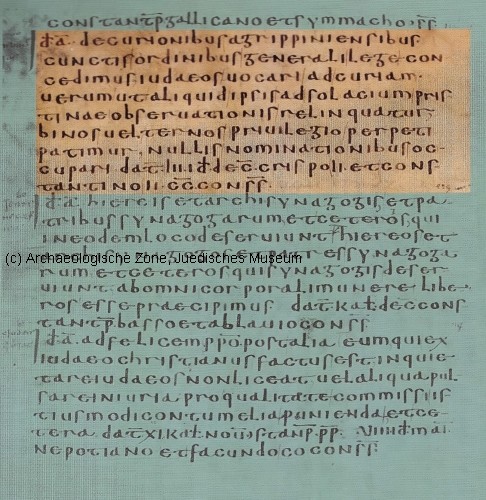 constantp̄ gallicano et symmacho c̄s̄s̄
īd ā. decurionibus agrippiniensibus
cunctis ordinibus generali lege con
cedimus iudaeos uocari ad curiam.
uerum ut aliquid ipsis ad solacium pris
tinae obseruationis relinquatur
binos uel ternos priuilegio perpeti
patimur nullis nominationibus oc
cupari dat̄ iiii īd dec̄ crispo ii et const
tantino ii c̄c̄ conss̄
īd ā. hiereis et archisynagogis et pa
tribus synagogarum et ceteros qui
in eodem loco deseruiunt hiereos et
(c) Archaeologische Zone, Juedisches Museum
archisynagogos et patres synagoga
rum et ceteros qui synagogis deser
uiunt ab omni corporali munere libe
ros esse praecipimus dat̄ kal̄ dec̄ cons
tantp̄ basso et ablauio conss̄
īd ā. ad felicem pp̄o post alia eum qui ex
iudaeo christianus factus est inquie
tare iudaeos non liceat uel aliqua pul
sare iniuria pro qualitate commissi is
tiusmodi contumelia punienda et ce
tera dat̄ xi kal̄ p̄p̄ uiii īd mai
nepotiano et facundo conss̄